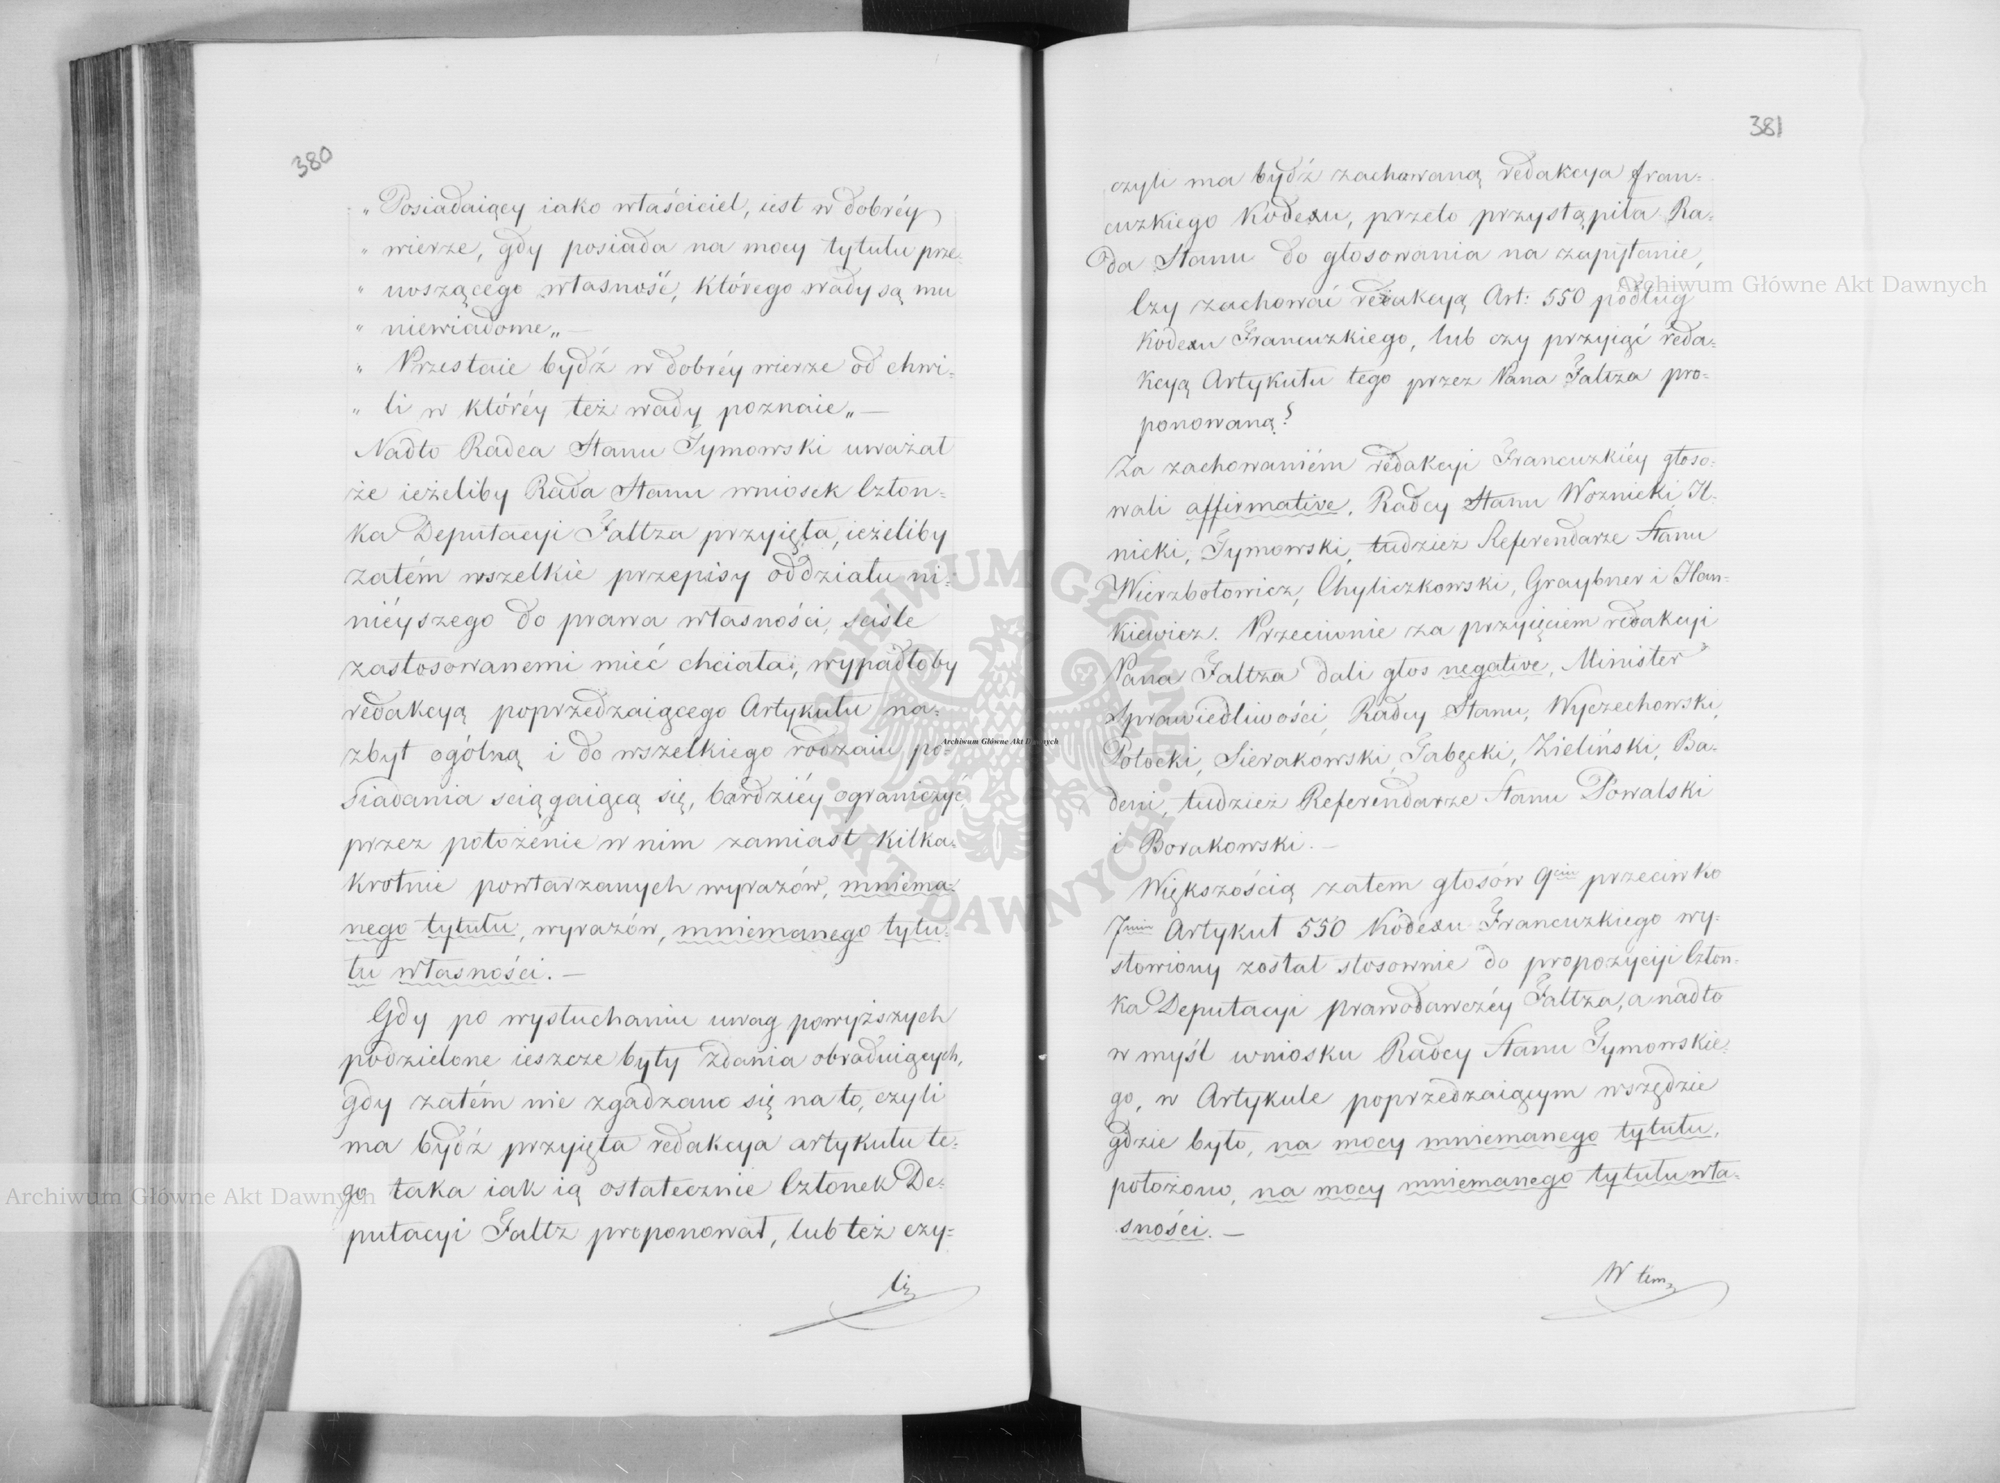 380
„ Posiadaiący iako właściciel, iest w dobréy
„ wierze, gdy posiada na mocy tytułu prze-
„ noszącego własność, którego wady są mu
„ niewiadome„ —
„ Przestaie bydź w dobréy wierze od chwi-
„ li w któréy też wady poznaie„ —
Nadto Radca Stanu Tymowski uważał
że ieżeliby Rada Stanu wniosek Człon-
ka Deputacyi Faltza przyięła, ieżeliby
zatém wszelkie przepisy oddziału ni-
niéyszego do prawa własności, sciśle
zastosowanemi mieć chciała; wypadłoby
redakcyą poprzedzaiącego Artykułu na-
zbyt ogólną i do wszelkiego rodzaiu po-
siadania sciągaiącą się, bardziéy ograniczyć
przez położenie w nim zamiast kilka-
krotnie powtarzanych wyrazów, mniema-
nego tytułu, wyrazów, mniemanego tytu-
łu własności. —
Gdy po wysłuchaniu uwag powyższych
podzielone ieszcze były zdania obraduiących,
gdy zatém nie zgadzano się na to, czyli
ma bydź przyięta redakcya artykułu te-
go taka iak ią ostatecznie Członek De-
putacyi Faltz proponował, lub też czy-
li
381
czyli ma bydź zachowaną redakcya fran-
cuzkiego Kodexu, przeto przystąpiła Ra-
da Stanu do głosowania na zapytanie,
Czy zachować redakcyą Art: 550 podług
Kodexu Francuzkiego, lub czy przyiąć reda-
kcyą Artykułu tego przez Pana Faltza pro-
ponowaną?
Za zachowaniém redakcyi Francuzkiéy głoso-
wali affirmative, Radcy Stanu Woznicki, Il-
nicki, Tymowski, tudzież Referendarze Stanu
Wierzbołowicz, Chyliczkowski, Graybner i Han-
kiewicz. Przeciwnie za przyięciem redakcyi
Pana Faltza dali głos negative, Minister
Sprawiedliwości, Radcy Stanu, Wyczechowski,
Potocki, Sierakowski, Tabęcki, Zieliński, Ba-
deni, tudzież Referendarze Stanu Powalski
i Borakowski. —
Większością zatem głosów 9ciu przeciwko
7miu Artykuł 550 Kodexu Francuzkiego wy-
słowiony został stosownie do propozycyi Człon-
ka Deputacyi prawodawczéy Faltza, a nadto
w myśl wniosku Radcy Stanu Tymowskie-
go, w Artykule poprzedzaiącym wszędzie
gdzie było, na mocy mniemanego tytułu,
położono, na mocy mniemanego tytułu wła-
sności. —
W tem
Archiwum Główne Akt Dawnych
Archiwum Główne Akt Dawnych
Archiwum Główne Akt Dawnych
ARCHIWUM GŁÓWNE AKT DAWNYCH